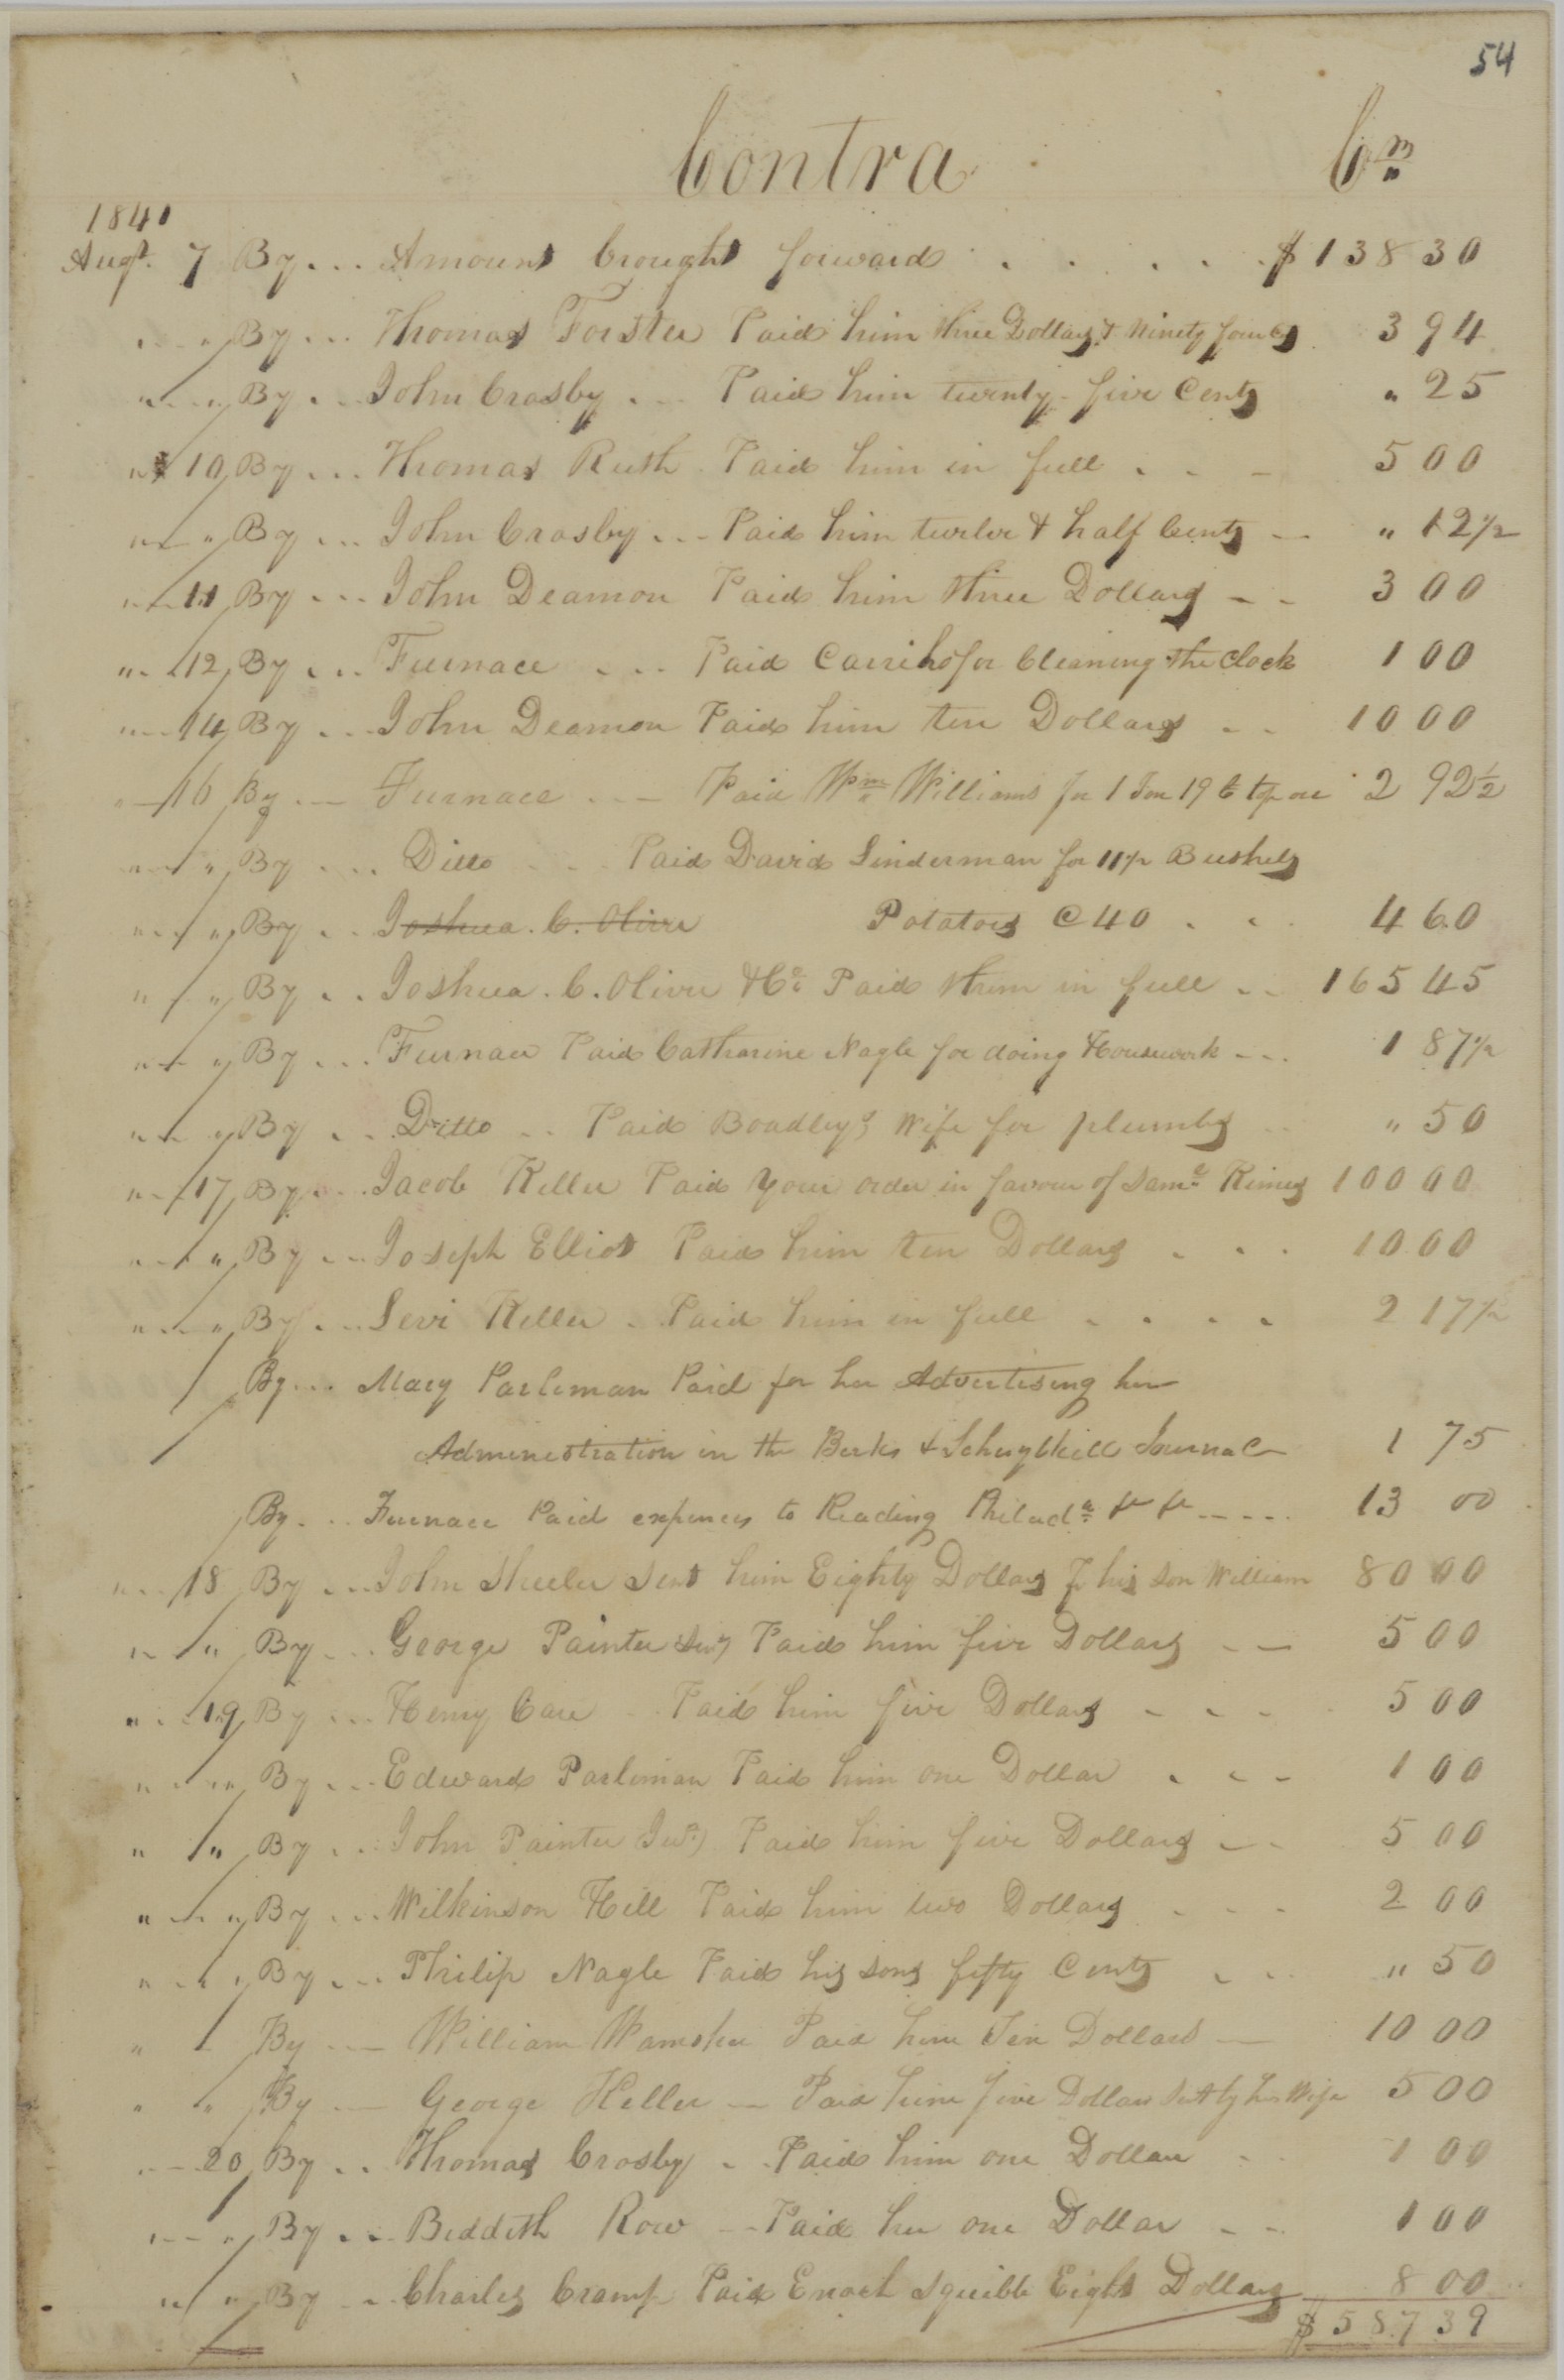 54
Contra Cr
1841
Augt. 7 By ... Amount brought forward . . . . . $138 30
" " By ... Thomas Forster Paid him three Dollars & Ninety four Cts 3 94
" " By ... John Crosby ... Paid him twenty-five Cents " 25
" 10 By ... Thomas Rush Paid him in full . . - 5 00
" " By ... John Crosby ... Paid him twelve & half Cents - " 12 1/2
" 11 By ... John Deamon Paid him three Dollars - - 3 00
" 12 By ... Furnace ... Paid for Cleaning the Clock 1 00
" 14 By ... John Deamon Paid him ten Dollars - - 10 00
" 16 By ... Furnace ... Paid Wm Williams for 1 Ton 19 Ct top ore 2 92 1/2
" " By ... Ditto ... Paid David Linderman for 11 1/2 Bushels
" " By .. Joshua. C. Oliver Potatoes @ 40 . . . 4 60
" " By .. Joshua. C. Oliver & Co Paid them in full .. 165 45
" " By ... Furnace Paid Catharine Nagle for doing Housework ... 1 87 1/2
" " By .. Ditto .. Paid Boadleys Wife for plumbs .. " 50
" 17 By ... Jacob Keller Paid your order in favour of Saml. Kimes 100 00
" " By ... Joseph Elliot Paid him ten Dollars . . . 10 00
" " By ... Levi Keller . Paid him in full . . . . 2 17 1/2
By ... Mary Parleman Paid for her Advertising her
Administration in the Berks & Schuylkill Journal 1 75
By ... Furnace Paid expences to Reading Philada. &c &c ..... 13 00
" 18 By ... John Sheeler Sent him Eighty Dollars pr his Son William 80 00
" " By ... George Painter Senr Paid him five Dollars - - 5 00
" 19 By ... Henry Care .. Paid him five Dollars - - - 5 00
" " By ... Edward Parleman Paid him one Dollar . . - 1 00
" " By ... John Painter Junr. Paid him five Dollars - - 5 00
" " By ... Wilkinson Hill Paid him two Dollars . . . 2 00
" " By ... Philip Nagle Paid his sons fifty Cents . . " 50
" By ... William Wamsher Paid him Ten Dollars - 10 00
" " By ... George Keller - Paid him five Dollars by his Wife 5 00
" 20 By .. Thomas Crosby . Paid him one Dollar . . 1 00
" " By ... Beddith Row - Paid her one Dollar - - 1 00
" " By .. Charles Cramp Paid Enoch Squibb Eight Dollars 8 00
$587 39